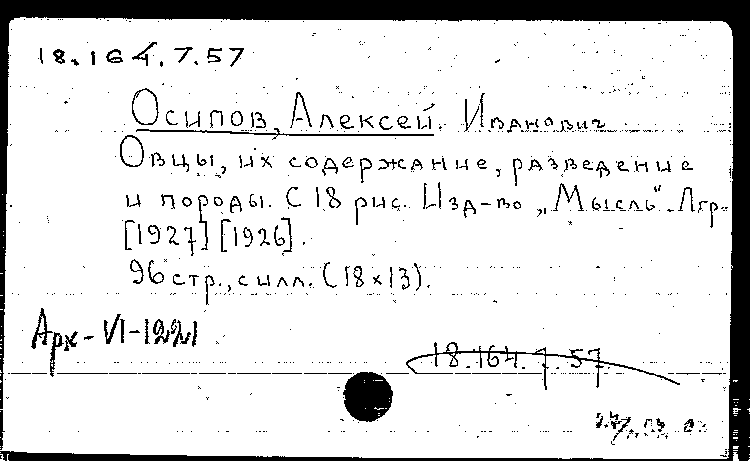 18.164.7.57
Осипов, Алексей Иванович
Овцы, их содержание, разведение
и породы. С 18 рис. Изд-во „Мысль“. Лгр.
[1927] [1926].
96 стр., силл. (18×13).
Арх-VI-1221
18.164.7.57